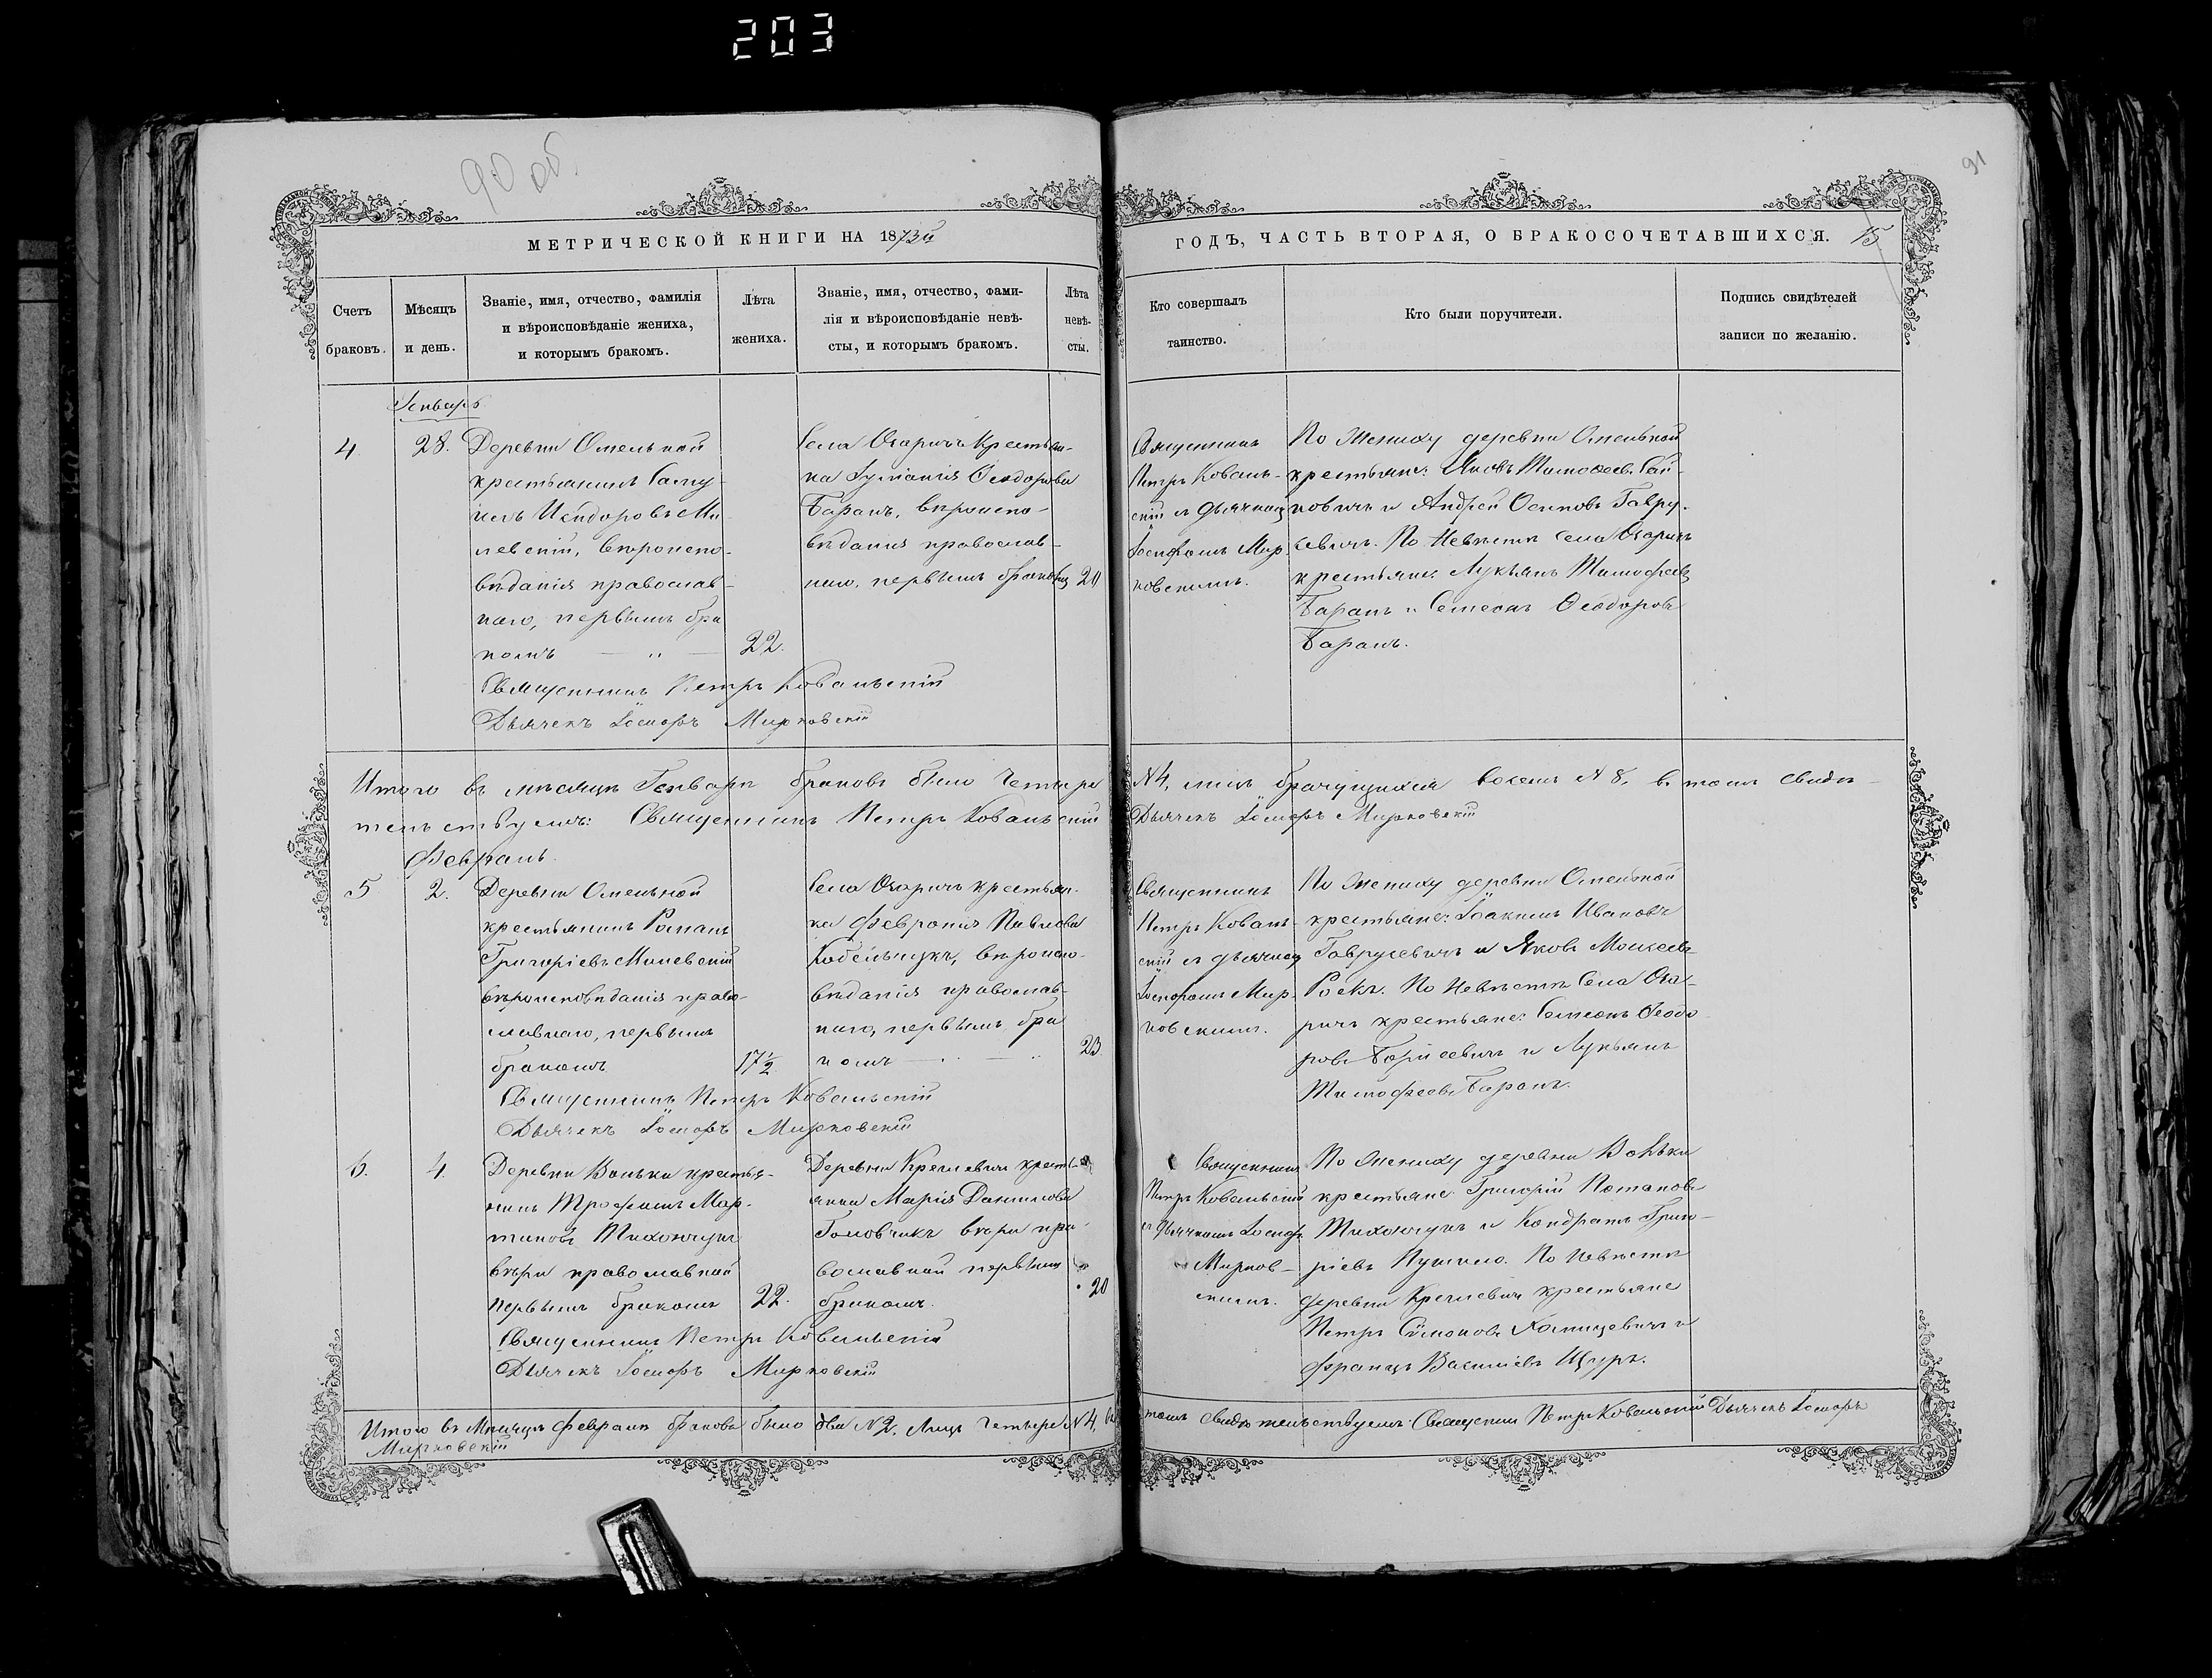 203
90 об.
91
МЕТРИЧЕСКОЙ КНИГИ НА 1873й
ГОДЪ, ЧАСТЬ ВТОРАЯ, О БРАКОСОЧЕТАВШИХСЯ.
15
Счетъ
браковъ.
Мѣсяцъ
и день.
Званіе, имя, отчество, фамилія
и вѣроисповѣданіе жениха,
и которымъ бракомъ.
Лѣта
жениха.
Званіе, имя, отчество, фами-
лія и вѣроисповѣданіе невѣ-
сты, и которымъ бракомъ.
Лѣта
невѣ-
сты.
Кто совершалъ
таинство.
Кто были поручители.
Подпись свидѣтелей
записи по желанію.
Генварь
4
28.
Деревни Омельной
крестьянинъ Саму-
илъ Исидоровъ Ми-
левскій, вѣроиспо-
вѣданія православ-
наго, первымъ бра
комъ
22.
Села Озаричъ крестьян-
ка Ѳеодорова
Баранъ, вѣроиспо-
вѣданія православ-
наго, первымъ бракомъ
20
Священникъ
Петръ Коваль-
скій съ дьячкомъ
Іосифомъ Мир-
ковскимъ.
По Жениху деревни Омельной
крестьяне: Яковъ Тимоѳеевъ Гай-
ковичъ и Андрей Осиповъ Гавру-
севичъ. По Невѣстѣ села Озаричъ
крестьяне Лукьянъ Тимоѳеевъ
Баранъ и Семеонъ Ѳеодоровъ
Баранъ.
Священникъ Петръ Ковальскій
Дьячекъ Іосифъ Мирковскій
Итого въ мѣсяцѣ Генварѣ браковъ было Четыре
№4, лицъ брачущихся восемь №8, въ томъ свидѣ-
тельствуемъ: Священникъ Петръ Ковальскій
Дьячекъ Іосифъ Мирковскій
Февраль.
5
2.
Деревни Омельной
крестьянинъ Романъ
Григоріевъ Милевскій
вѣроисповѣданія право-
славнаго, первымъ
бракомъ
17½
Села Озаричъ крестьян-
ка Февронія Павлова
вѣроиспо-
вѣданія православ-
наго, первымъ бра
комъ
23
Священникъ
Петръ Коваль-
скій съ дьячкомъ
Іосифомъ Мир-
ковскимъ.
По Жениху деревни Омельной
крестьяне: Іоакимъ Ивановъ
Гаврусевичъ и Яковъ Моисеевъ
По Невѣстѣ Села Оза-
ричъ крестьяне: Семеонъ Ѳеодо-
ровъ Борисевичъ и Лукьянъ
Тимоѳеевъ Баранъ.
Священникъ Петръ Ковальскій
Дьячекъ Іосифъ Мирковскій
6.
4.
Деревни Волька крестья-
нинъ Трофимъ Мар-
тиновъ Тихончукъ
вѣры православной
первымъ бракомъ
22.
Деревни Кремевичъ кресть-
янка Марія Данилова
Головчикъ вѣры пра-
вославной первымъ
бракомъ.
20
Священникъ
Петръ Ковальскій
съ дьячкомъ Іосиф.
Мирков-
скимъ.
По Жениху деревни Вольки
крестьяне Григорій Потаповъ
Тихончукъ и Кондратъ Григо-
ріевъ Пушило. По Невѣстѣ
деревни Кремевичъ крестьяне
Петръ Симоновъ и
Францъ Василіевъ Щуръ.
Священникъ Петръ Ковальскій
Дьячекъ Іосифъ Мирковскій
Итого въ Мѣсяцѣ Февралѣ браковъ было два №2, Лицъ Четыре №4, въ
томъ свидѣтельствуемъ: Священникъ Петръ Ковальскій Дьячекъ Іосифъ
Мирковскій